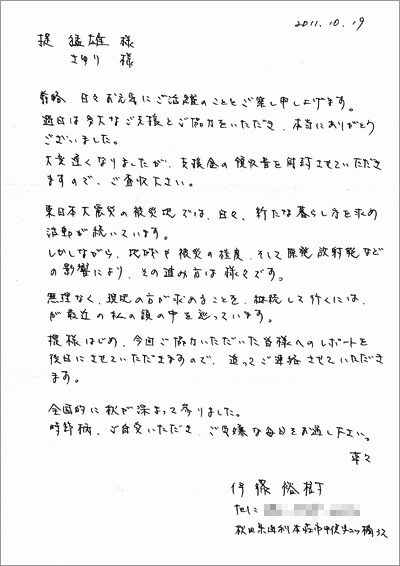 2011.10.19
堤 猛雄 様
さゆり 様
前略 日々お元気にご活躍のこととご察し申し上げます。
過日は多大なご支援とご協力をいただき、本当にありがとう
ございました。
大変遅くなりましたが、支援金の領収書を同封させていただき
ますので、ご査収下さい。
東日本大震災の被災地では、日々、新たな暮らし方を求め
活動が続いています。
しかしながら、地域や被災の程度、そして原発放射能などの
影響により、その進み方は様々です。
無理なく、現地の方が求めることを、継続して行くには、
が最近の私の頭の中を巡っています。
堤様はじめ、今回ご協力いただいた皆様へのレポートを
後日にさせていただきますので、追ってご連絡させていただき
ます。
全国的に秋が深まって参りました。
時節柄、ご自愛いただき、ご機嫌な毎日をお過し下さい。
草々
伊藤 裕樹
tel:
秋田県由利本荘市